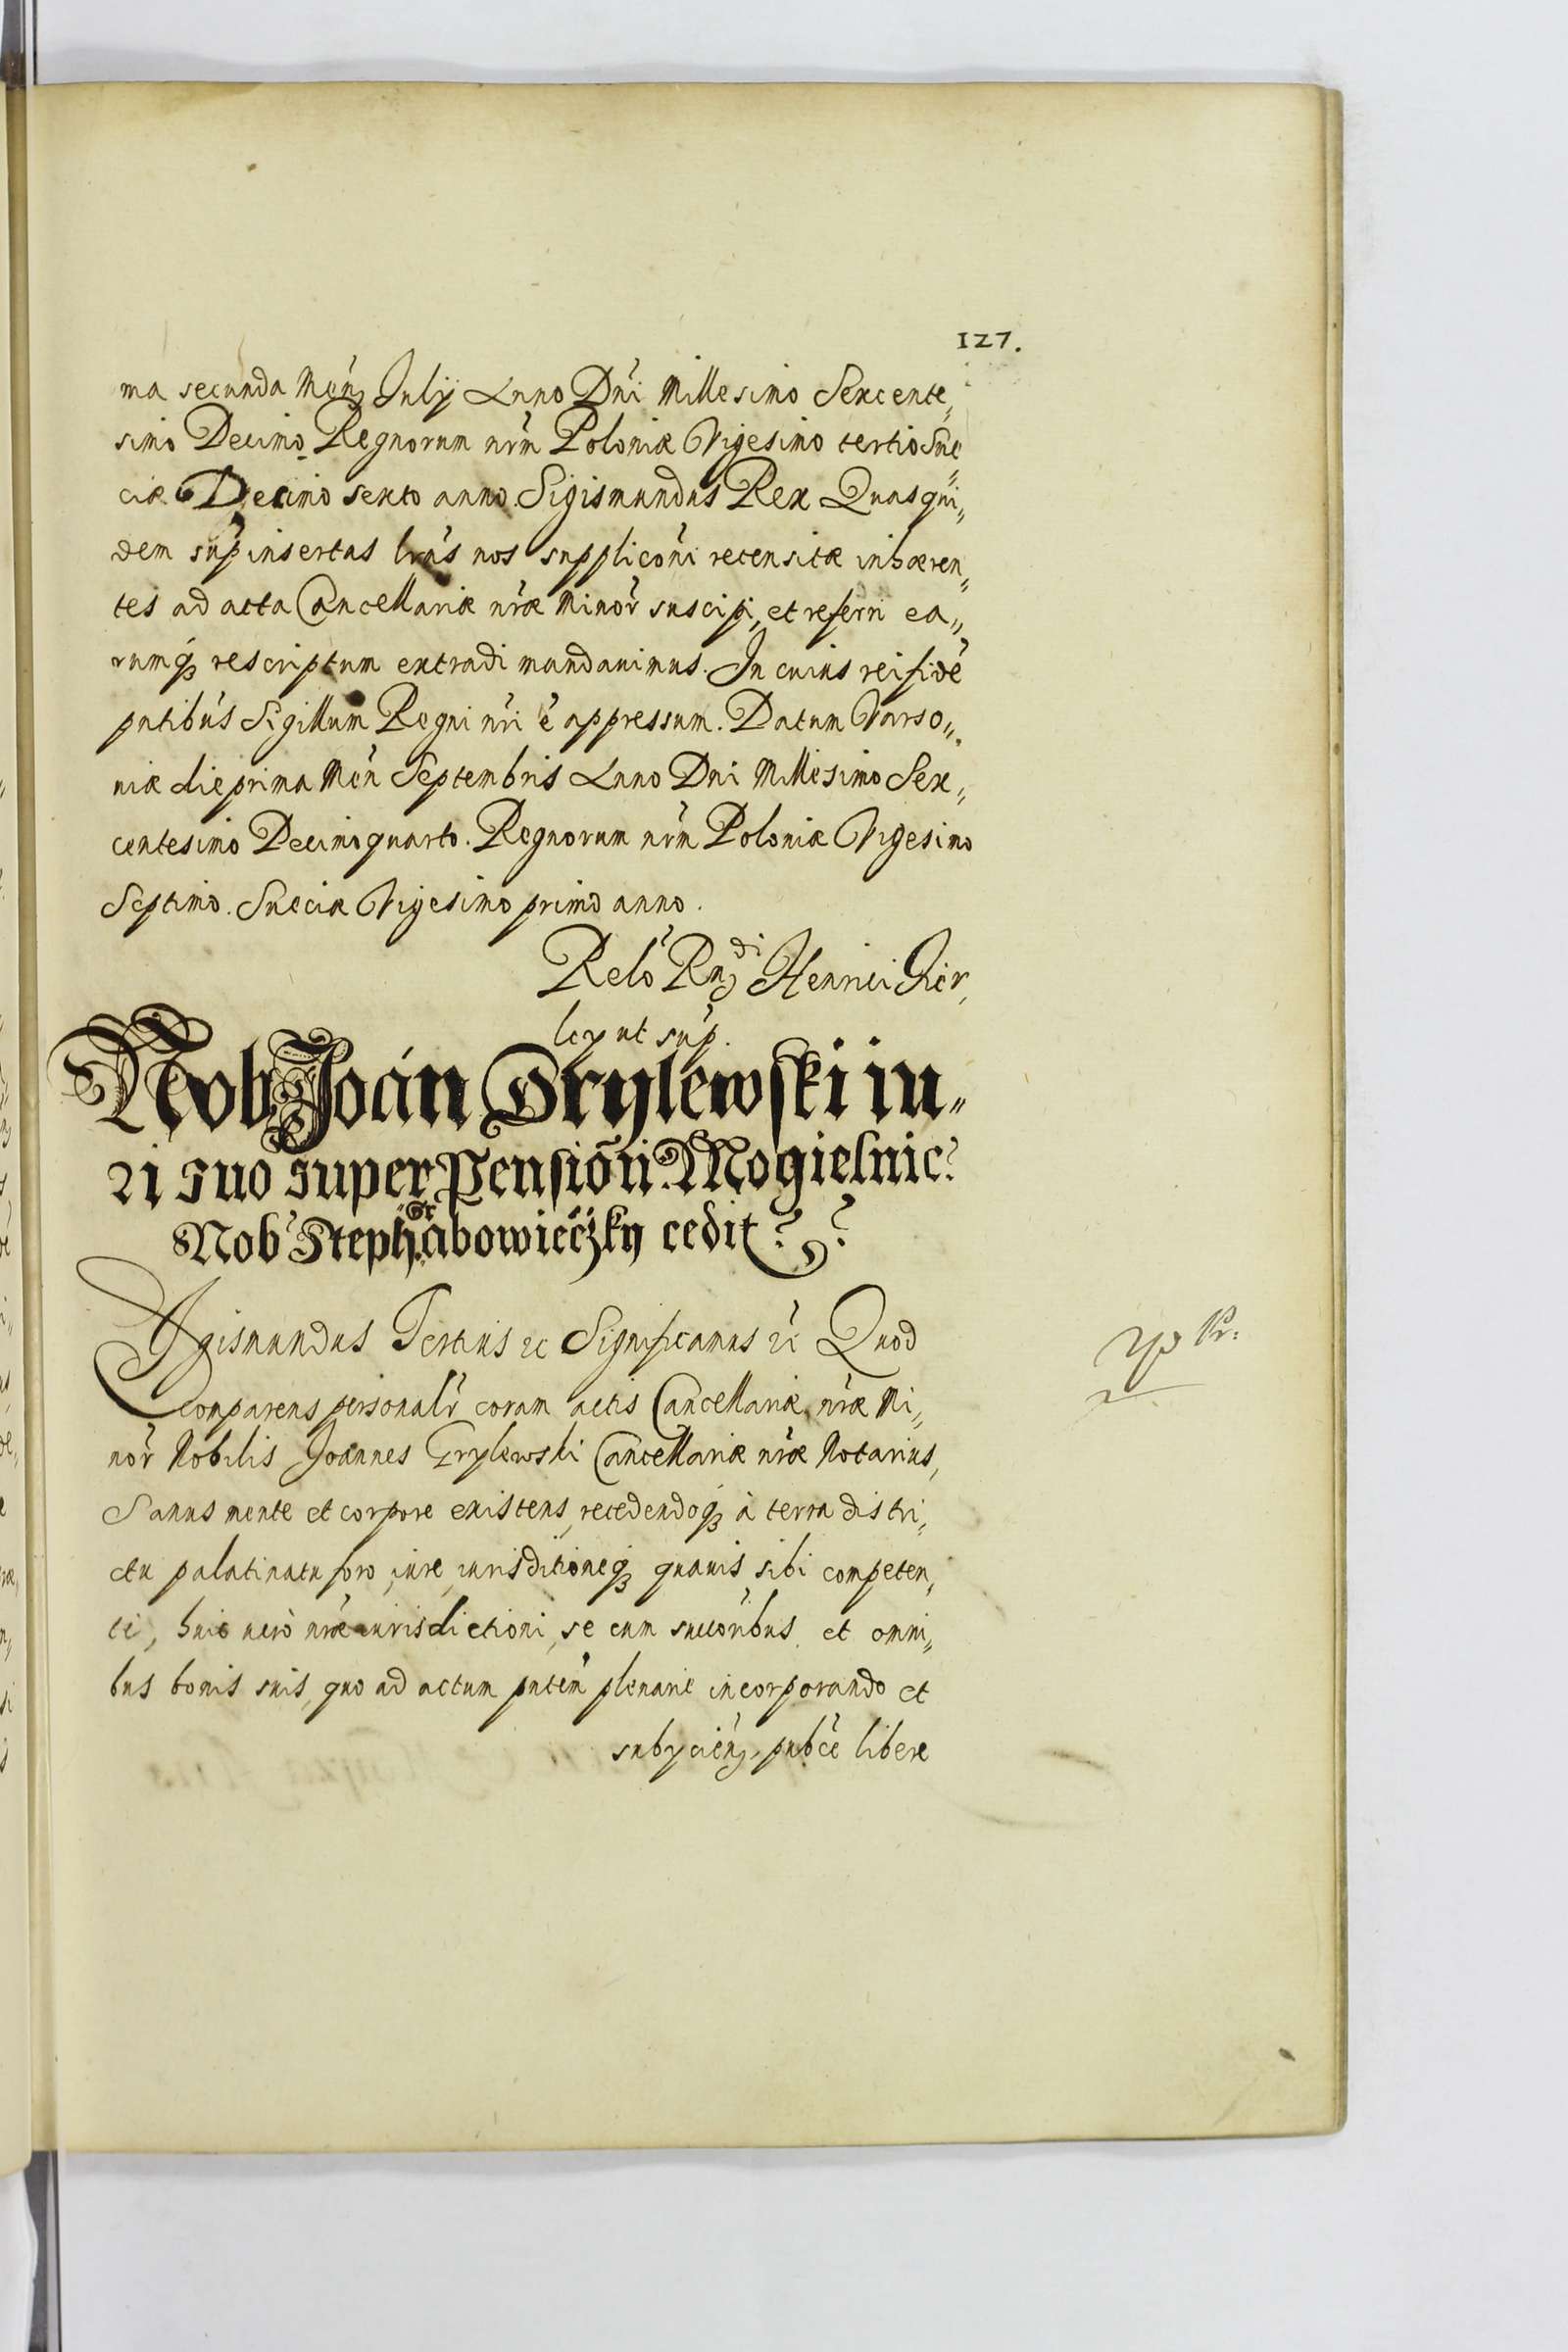 127.
ma secunda Men̄ Julij Anno Dn̄i Millesimo Sexcente„
simo Decimo Regnorum nr̄m Poloniæ Vigesimo tertio Sue„
ciæ Decimo sexto anno. Sigismundus Rex Quas qui„
dem sup̄ insertas lrās nos supplicōni recensitæ inhæren„
tes ad acta Cancellariæ nr̄æ Minor̄ suscipi, et referri ea„
rumq; rescriptum extradi mandauimus. In cuius rei fidē
pntibūs Sigillum Regni nr̄i ē appressum. Datum Varso„
uiæ die prima Men̄ Septembris Anno Dni Millesimo Sex„
centesimo Decimoquarto. Regnorum nr̄m Poloniæ Vigesimo
Septimo. Sueciæ Vigesimo primo anno.
Relō Rn̄di Henrici Fir,
ley ut sup̄.
Nob Joán Grylewski iu„
ri suo super Pensiōn Mogielnic
Nob Steph. Grabowieczky cedit
Sigismundus Tertius ec Significamus ec Quod
comparens personalr̄ coram actis Cancellariæ nr̄æ Mi„
nor̄ Nobilis Joannes Grylewski Cancellariæ nr̄æ Notarius,
Sanus mente et corpore existens, recedendoq; à terra distri„
ctu palatinatu foro, iure, iurisditioneq; quauis sibi competen,
ti, huic uerò nr̄æ iurisdictioni, se cum succōribus et omni„
bus bonis suis, quo ad actum pntēm plenarie incorporando et
subycien̄, pubcē libere